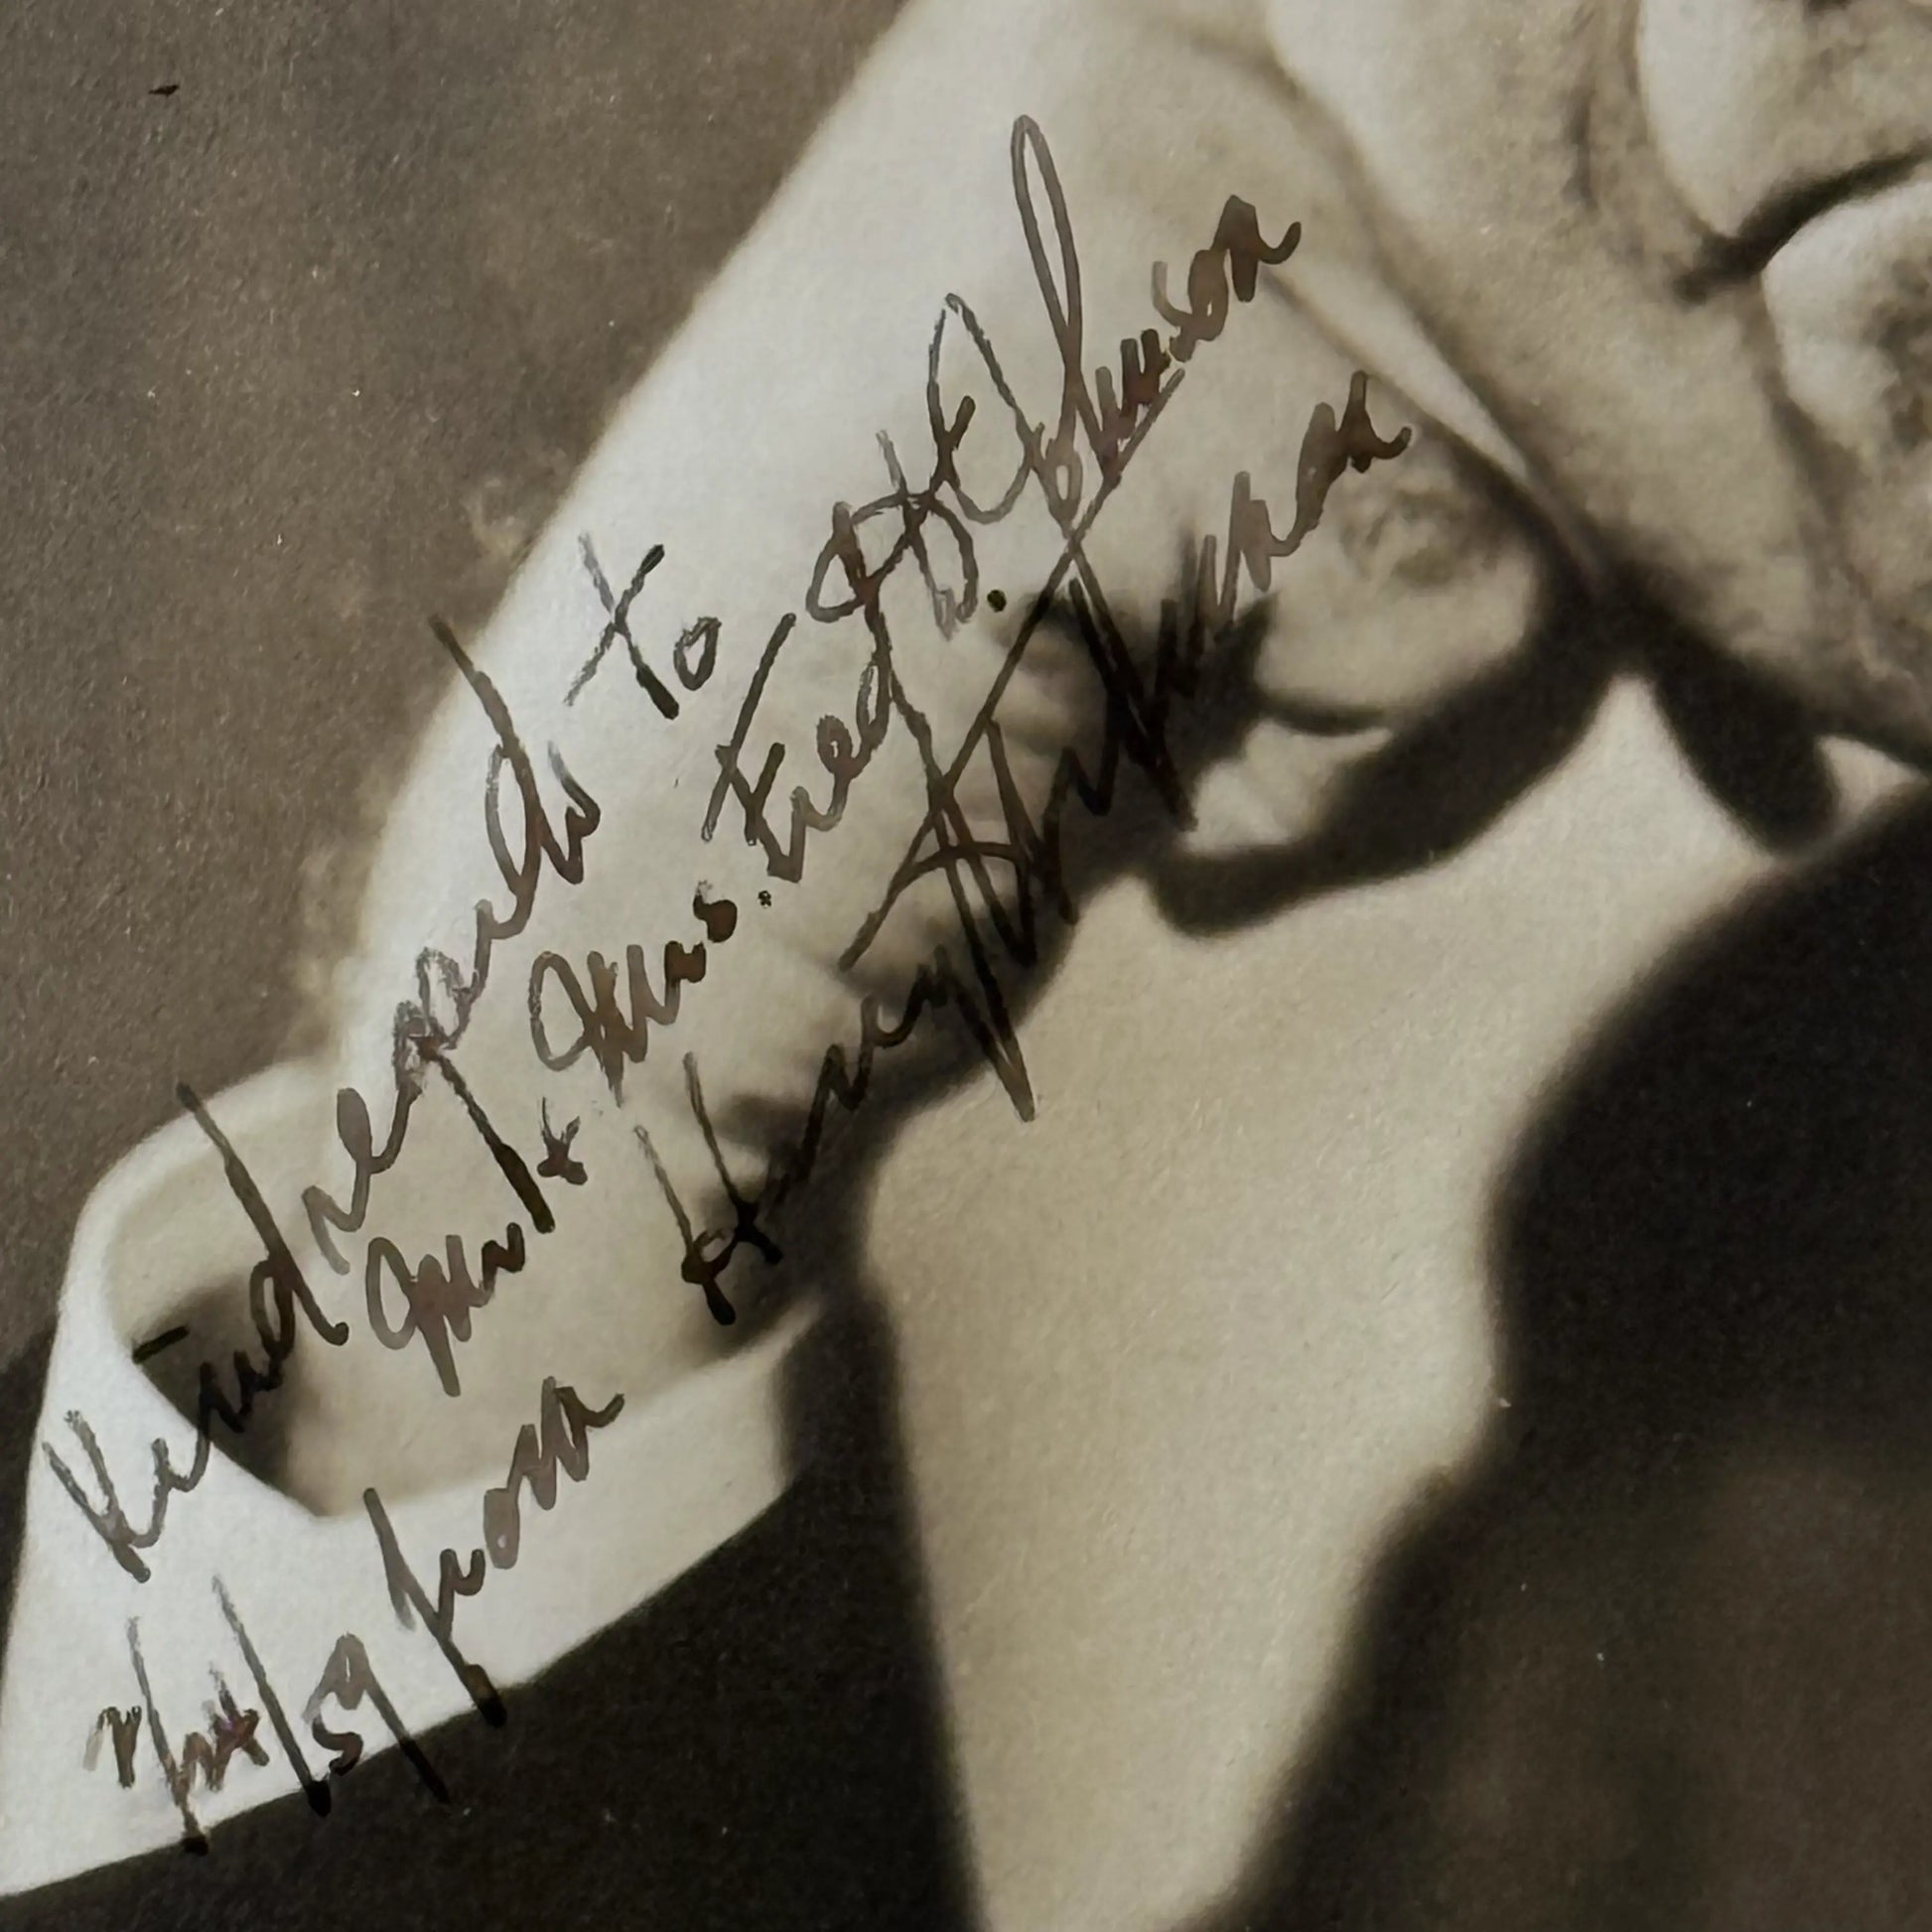 Kind regards to
Mr & Mrs. Fred H. Johnson
from Harry Truman